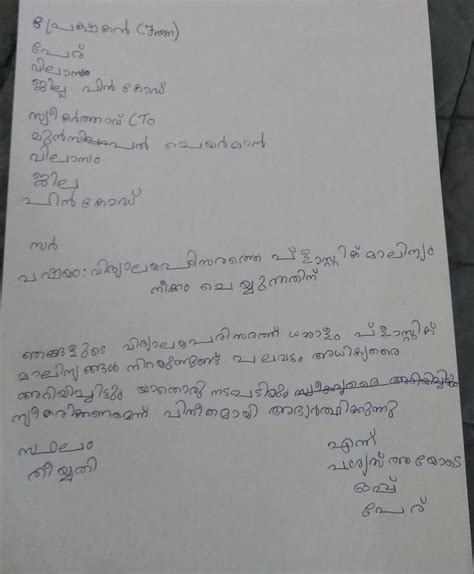 പ്രേക്ഷകൻ (From)
പേര്
വിലാസം
ജില്ല പിൻകോഡ്
സ്വീകർത്താവ് (To
മുൻസിപ്പൽ ചെയർമാൻ
വിലാസം
ജില്ല
പിൻകോഡ്
സർ
വിഷയം: വിദ്യാലയപരിസരത്തെ പ്ളാസ്റ്റിക് മാലിന്യം
നീക്കം ചെയ്യുന്നതിന്
ഞങ്ങളുടെ വിദ്യാലയപരിസരത്ത് ധാരാളം പ്ളാസ്റ്റിക്
മാലിന്യങ്ങൾ നിറയുന്നുണ്ട്. പലവട്ടം അധികൃരെ
അറിയിച്ചിട്ടും യാതൊരു നടപടിയും
സ്വീകരിക്കണമെന്ന് വിനീതമായി അഭ്യർത്ഥിക്കുന്നു
സ്ഥലം
തീയ്യതി
എന്ന്
വിശ്വസ്തതയോടെ
ഒപ്പ്
പേര്